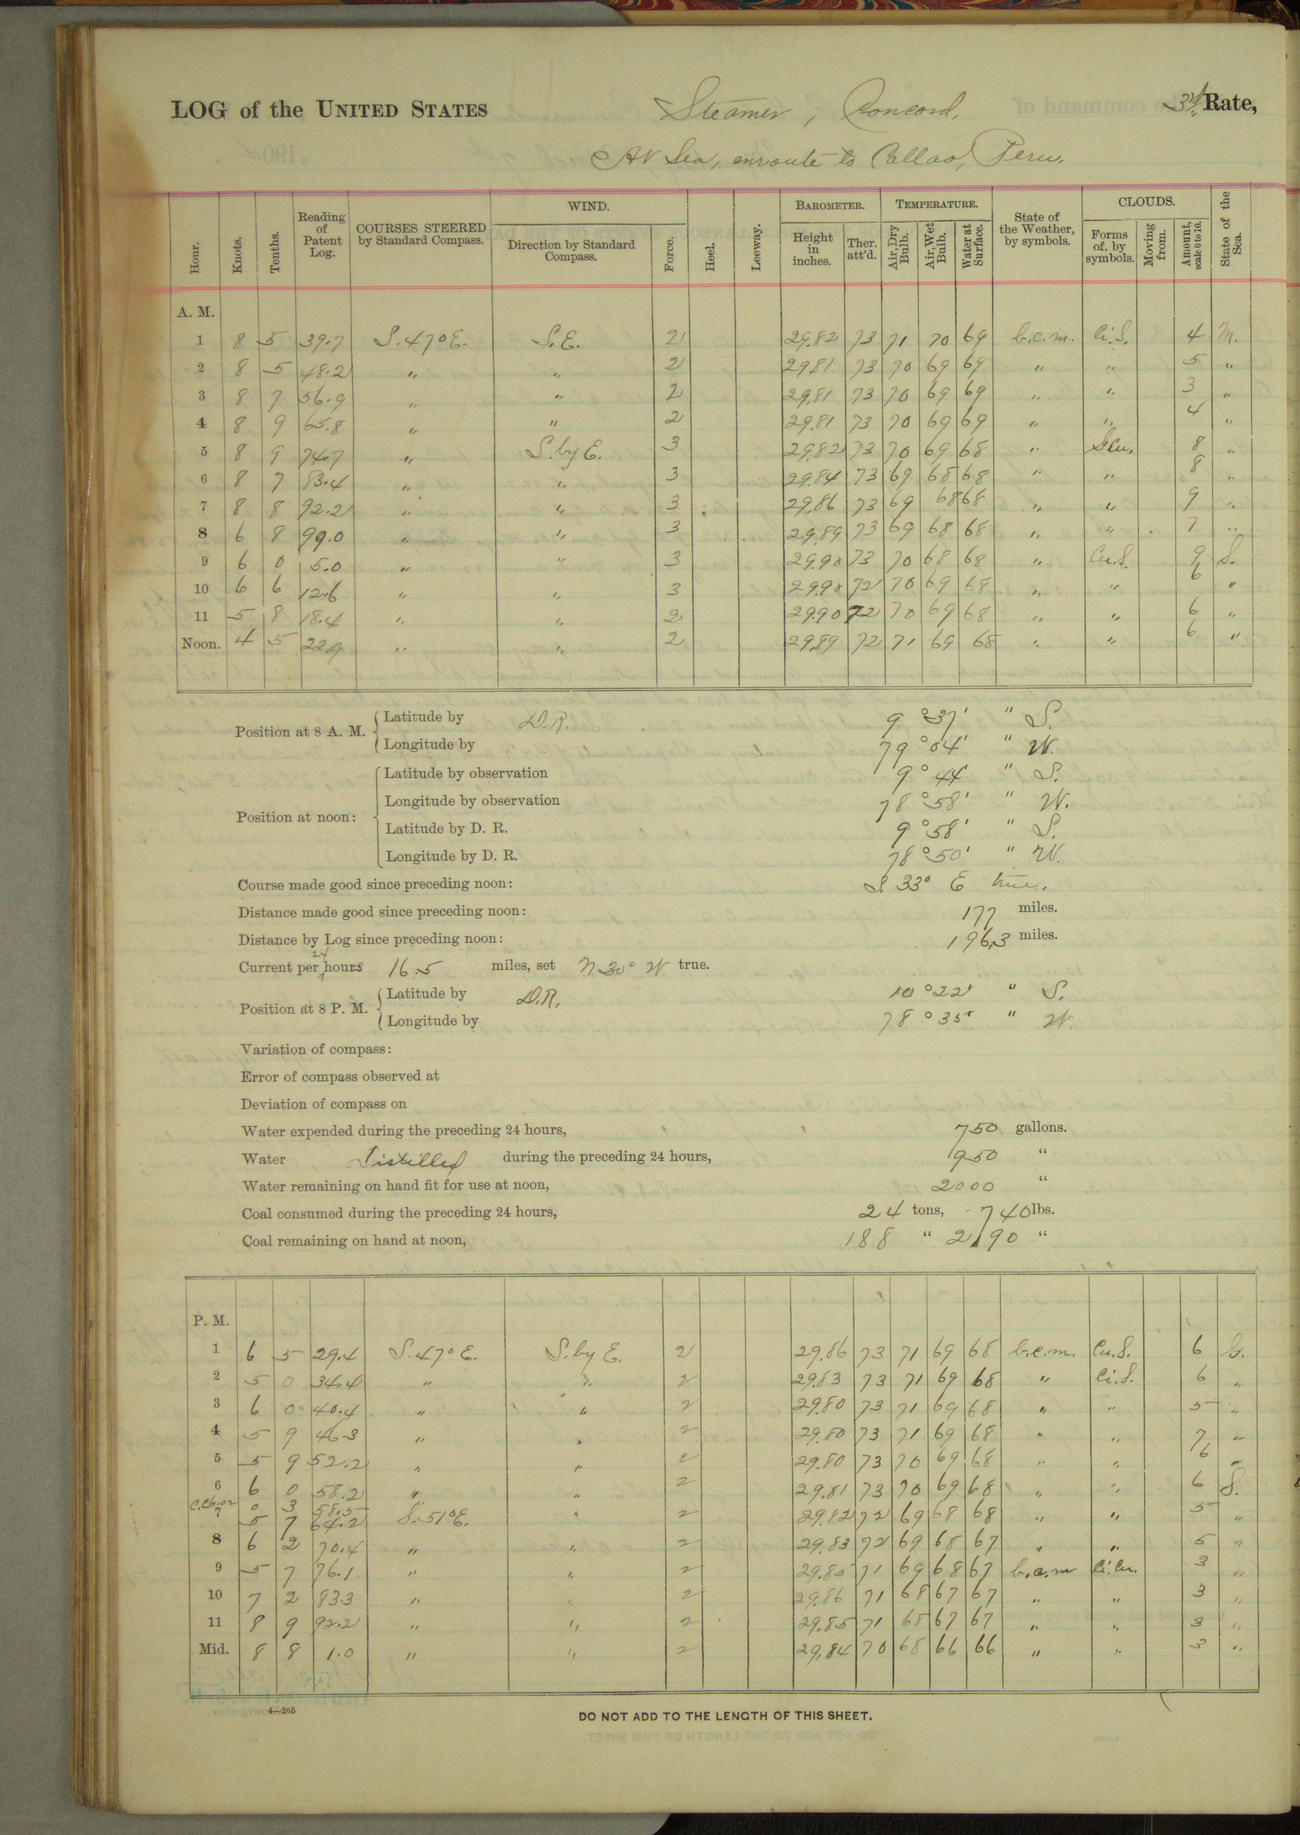 LOG of the UNITED STATES Steamer, Concord, 3rd Rate,
At Sea, enroute to Callao, Peru.
Hour. Knots. Tenths. Reading of Patent Log. COURSES STEERED by Standard Compass. WIND. Direction by Standard Compass. Force. Heel. Leeway. BAROMETER. Height in inches. Ther. att'd. TEMPERATURE. Air, Dry Bulb. Air, Wet Bulb. Water at Surface. State of the Weather, by symbols. CLOUDS. Forms of, by symbols. Moving from. Amount, scale 0 to 10. State of the Sea.
A. M.
1 8 5 39.7 S. 47° E. S.E. 2 29.82 73 71 70 69 b.c.m. Ci.S. 4 M.
2 8 5 48.2 " " 2 29.81 73 70 69 69 " " 5 "
3 8 7 56.9 " " 2 29.81 73 70 69 69 " " 3 "
4 8 9 65.8 " " 2 29.81 73 70 69 69 " " 4 "
5 8 9 74.7 " S. by E. 3 29.82 73 70 69 68 " S.Cu. 8 "
6 8 7 83.4 " " 3 29.84 73 69 68 68 " " 8 "
7 8 8 92.2 " " 3 29.86 73 69 68 68 " " 9 "
8 6 8 99.0 " " 3 29.89 73 69 68 68 " " 7 "
9 6 0 5.0 " " 3 29.90 73 70 68 68 " Cu.S. 9 S.
10 6 6 12.6 " " 3 29.90 72 70 69 68 " " 6 "
11 5 8 18.4 " " 2 29.90 72 70 69 68 " " 6 "
Noon. 4 5 22.9 " " 2 29.89 72 71 69 68 " " 6 "
Position at 8 A. M. Latitude by D.R. 9 ° 37 ' " S.
Longitude by 79 ° 04 ' " W.
Position at noon: Latitude by observation 9 ° 44 ' " S.
Longitude by observation 78 ° 58 ' " W.
Latitude by D. R. 9 ° 58 ' " S.
Longitude by D. R. 78 ° 50 ' " W.
Course made good since preceding noon: S. 33° E true.
Distance made good since preceding noon: 177 miles.
Distance by Log since preceding noon: 196.3 miles.
Current per 24 hours 16.5 miles, set N 30° W true.
Position at 8 P. M. Latitude by D.R. 10 ° 22 ' " S.
Longitude by 78 ° 35 ' " W.
Variation of compass:
Error of compass observed at
Deviation of compass on
Water expended during the preceding 24 hours, 750 gallons.
Water Distilled during the preceding 24 hours, 950 "
Water remaining on hand fit for use at noon, 2000 "
Coal consumed during the preceding 24 hours, 24 tons, 740 lbs.
Coal remaining on hand at noon, 188 " 2190 "
P. M.
1 6 5 29.4 S. 47° E. S. by E. 2 29.86 73 71 69 68 b.c.m. Cu.S. 6 G.
2 5 0 34.4 " " 2 29.83 73 71 69 68 " Ci.S. 6 "
3 6 0 40.4 " " 2 29.80 73 71 69 68 " " 5 "
4 5 9 46.3 " " 2 29.80 73 71 69 68 " " 7 "
5 5 9 52.2 " " 2 29.80 73 70 69 68 " " 6 "
6 6 0 58.2 " " 2 29.81 73 70 69 68 " " 6 S.
0 3 58.5 "
7 5 7 64.2 S. 51° E. " 2 29.82 72 69 68 68 " " 5 "
8 6 2 70.4 " " 2 29.83 72 69 68 67 " " 5 "
9 5 7 76.1 " " 2 29.85 71 69 68 67 b.c.m Ci.Cu. 3 "
10 7 2 83.3 " " 2 29.86 71 68 67 67 " " 3 "
11 8 9 92.2 " " 2 29.85 71 68 67 67 " " 3 "
Mid. 8 8 1.0 " " 2 29.84 70 68 66 66 " " 3 "
4—265
DO NOT ADD TO THE LENGTH OF THIS SHEET.